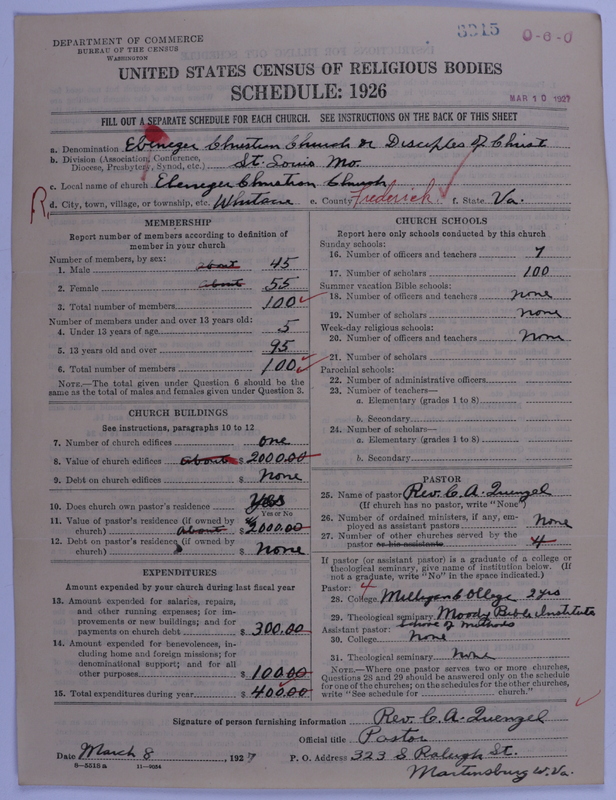 3915 0-6-0
DEPARTMENT OF COMMERCE
BUREAU OF THE CENSUS
WASHINGTON
UNITED STATES CENSUS OF RELIGIOUS BODIES
SCHEDULE: 1926
MAR 10 1927
FILL OUT A SEPARATE SCHEDULE FOR EACH CHURCH. SEE INSTRUCTIONS ON THE BACK OF THIS SHEET
a. Denomination Ebenezer Christian Church or Disciples of Christ
b. Division (Association, Conference, Diocese, Presbytery, Synod, etc.) St. Louis Mo.
c. Local name of church Ebenezer Christian Church
R, d. City, town, village, or township, etc. Whitacre e. County Frederick f. State Va.
MEMBERSHIP
Report number of members according to definition of
member in your church
Number of members, by sex:
1. Male about 45
2. Female about 55
3. Total number of members 100
Number of members under and over 13 years old:
4. Under 13 years of age 5
5. 13 years old and over 95
6. Total number of members 100
NOTE.—The total given under Question 6 should be
same as the total of males and females given under Question 3.
CHURCH BUILDINGS
See instructions, paragraphs 10 to 12
7. Number of church edifices one
8. Value of church edifices about $ 2000.00
9. Debt on church edifices $ None
10. Does church own pastor's residence Yes
Yes or No
11. Value of pastor's residence (if owned by
church) about $ 2000.00
12. Debt on pastor's residence (if owned by
church) $ None
EXPENDITURES
Amount expended by your church during last fiscal year
13. Amount expended for salaries, repairs,
and other running expenses; for im-
provements or new buildings; and for
payments on church debt $ 300.00
14. Amount expended for benevolences, in-
cluding home and foreign missions; for
denominational support; and for all
other purposes $ 100.00
15. Total expenditures during year $ 400.00
CHURCH SCHOOLS
Report here only schools conducted by this church
Sunday schools:
16. Number of officers and teachers 7
17. Number of scholars 100
Summer vacation Bible schools:
18. Number of officers and teachers none
19. Number of scholars none
Week-day religious schools:
20. Number of officers and teachers none
21. Number of scholars
Parochial schools:
22. Number of administrative officers
23. Number of teachers—
a. Elementary (grades 1 to 8)
b. Secondary
24. Number of scholars—
a. Elementary (grades 1 to 8)
b. Secondary
PASTOR
25. Name of pastor Rev. C. A. Quenzel
(If church has no pastor, write "None")
26. Number of ordained ministers, if any, em-
ployed as assistant pastors None
27. Number of other churches served by the
pastor or his assistants 4
If pastor (or assistant pastor) is a graduate of a college or
theological seminary, give name of institution below. (If
not a graduate, write "No" in the space indicated.)
Pastor: 4
28. College Milligan College 2 yrs
29. Theological seminary Moody Bible Institute
Assistant pastor: School of methods
30. College None
31. Theological seminary None
NOTE.—Where one pastor serves two or more churches,
Questions 28 and 29 should be answered only on the schedule
for one of the churches; on the schedules for the other churches,
write "See schedule for church."
Signature of person furnishing information Rev. C. A. Quenzel
Official title Pastor
Date March 8, 1927 P. O. Address 323 S Raleigh St.
8—5515a 11—9034 Martinsburg W. Va.